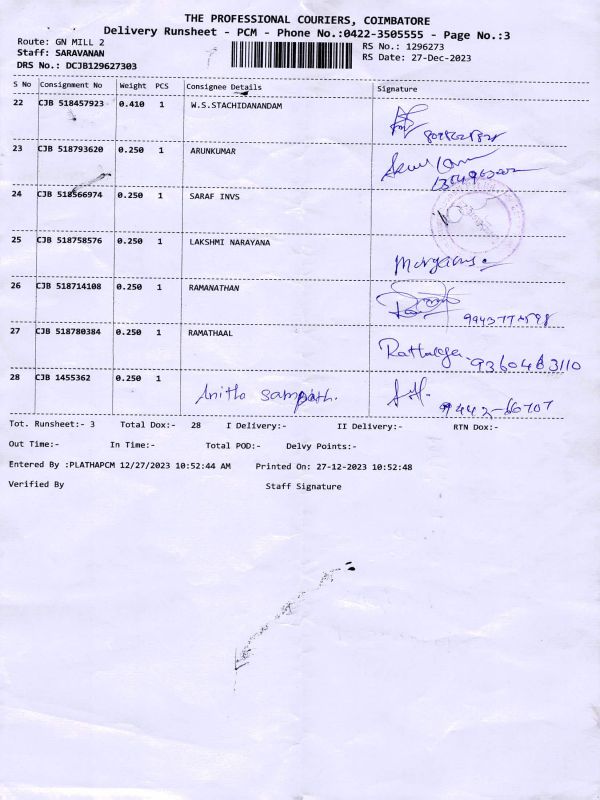 THE PROFESSIONAL COURIERS, COIMBATORE
Delivery Runsheet - PCM - Phone No.:0422-3505555 - Page No.:3
Route: GN MILL 2 RS No.: 1296273
Staff: SARAVANAN RS Date: 27-Dec-2023
DRS No.: DCJB129627303
S No Consignment No Weight PCS Consignee Details Signature
22 CJB 518457923 0.410 1 W.S.STACHIDANANDAM
23 CJB 518793620 0.250 1 ARUNKUMAR
24 CJB 518566974 0.250 1 SARAF INVS
25 CJB 518758576 0.250 1 LAKSHMI NARAYANA
26 CJB 518714108 0.250 1 RAMANATHAN
27 CJB 518780384 0.250 1 RAMATHAAL 9360463110
28 CJB 1455362 0.250 1 Anitha Sampath.
Tot. Runsheet:- 3 Total Dox:- 28 I Delivery:- II Delivery:- RTN Dox:-
Out Time:- In Time:- Total POD:- Delvy Points:-
Entered By :PLATHAPCM 12/27/2023 10:52:44 AM Printed On: 27-12-2023 10:52:48
Verified By Staff Signature